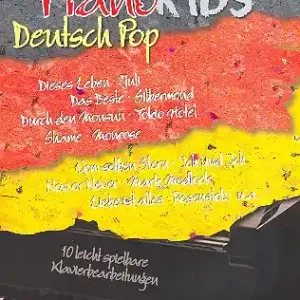 Piano KIDS
Deutsch Pop
Dieses Leben · Juli
Das Beste · Silbermond
Durch den Monsun · Tokio Hotel
Shame · Monrose
Vom selben Stern · Ich und Ich
Now or Never · Mark Medlock
Liebe ist alles · Rosenstolz u.a.
10 leicht spielbare
Klavierbearbeitungen